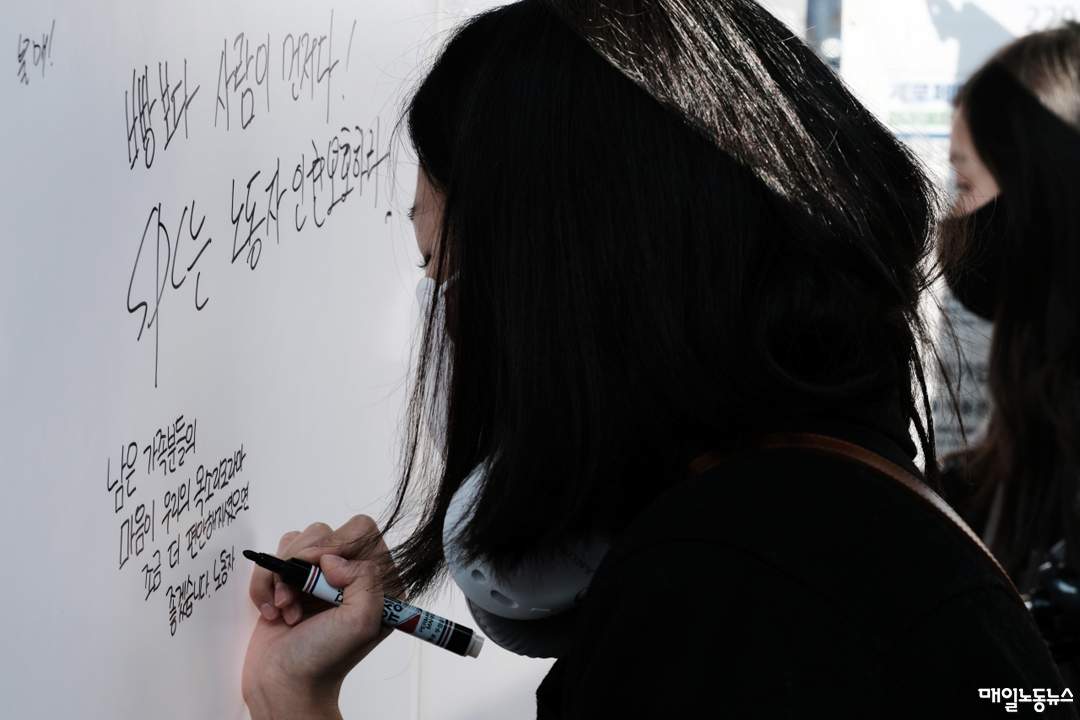 불매!
빵보다 사람이 먼저다!
SPC는 노동자 인권보호하라.
남은 가족분들의
마음이 우리의 목소리로나마
조금 더 편안해지셨으면
좋겠습니다. 노동자
매일노동뉴스